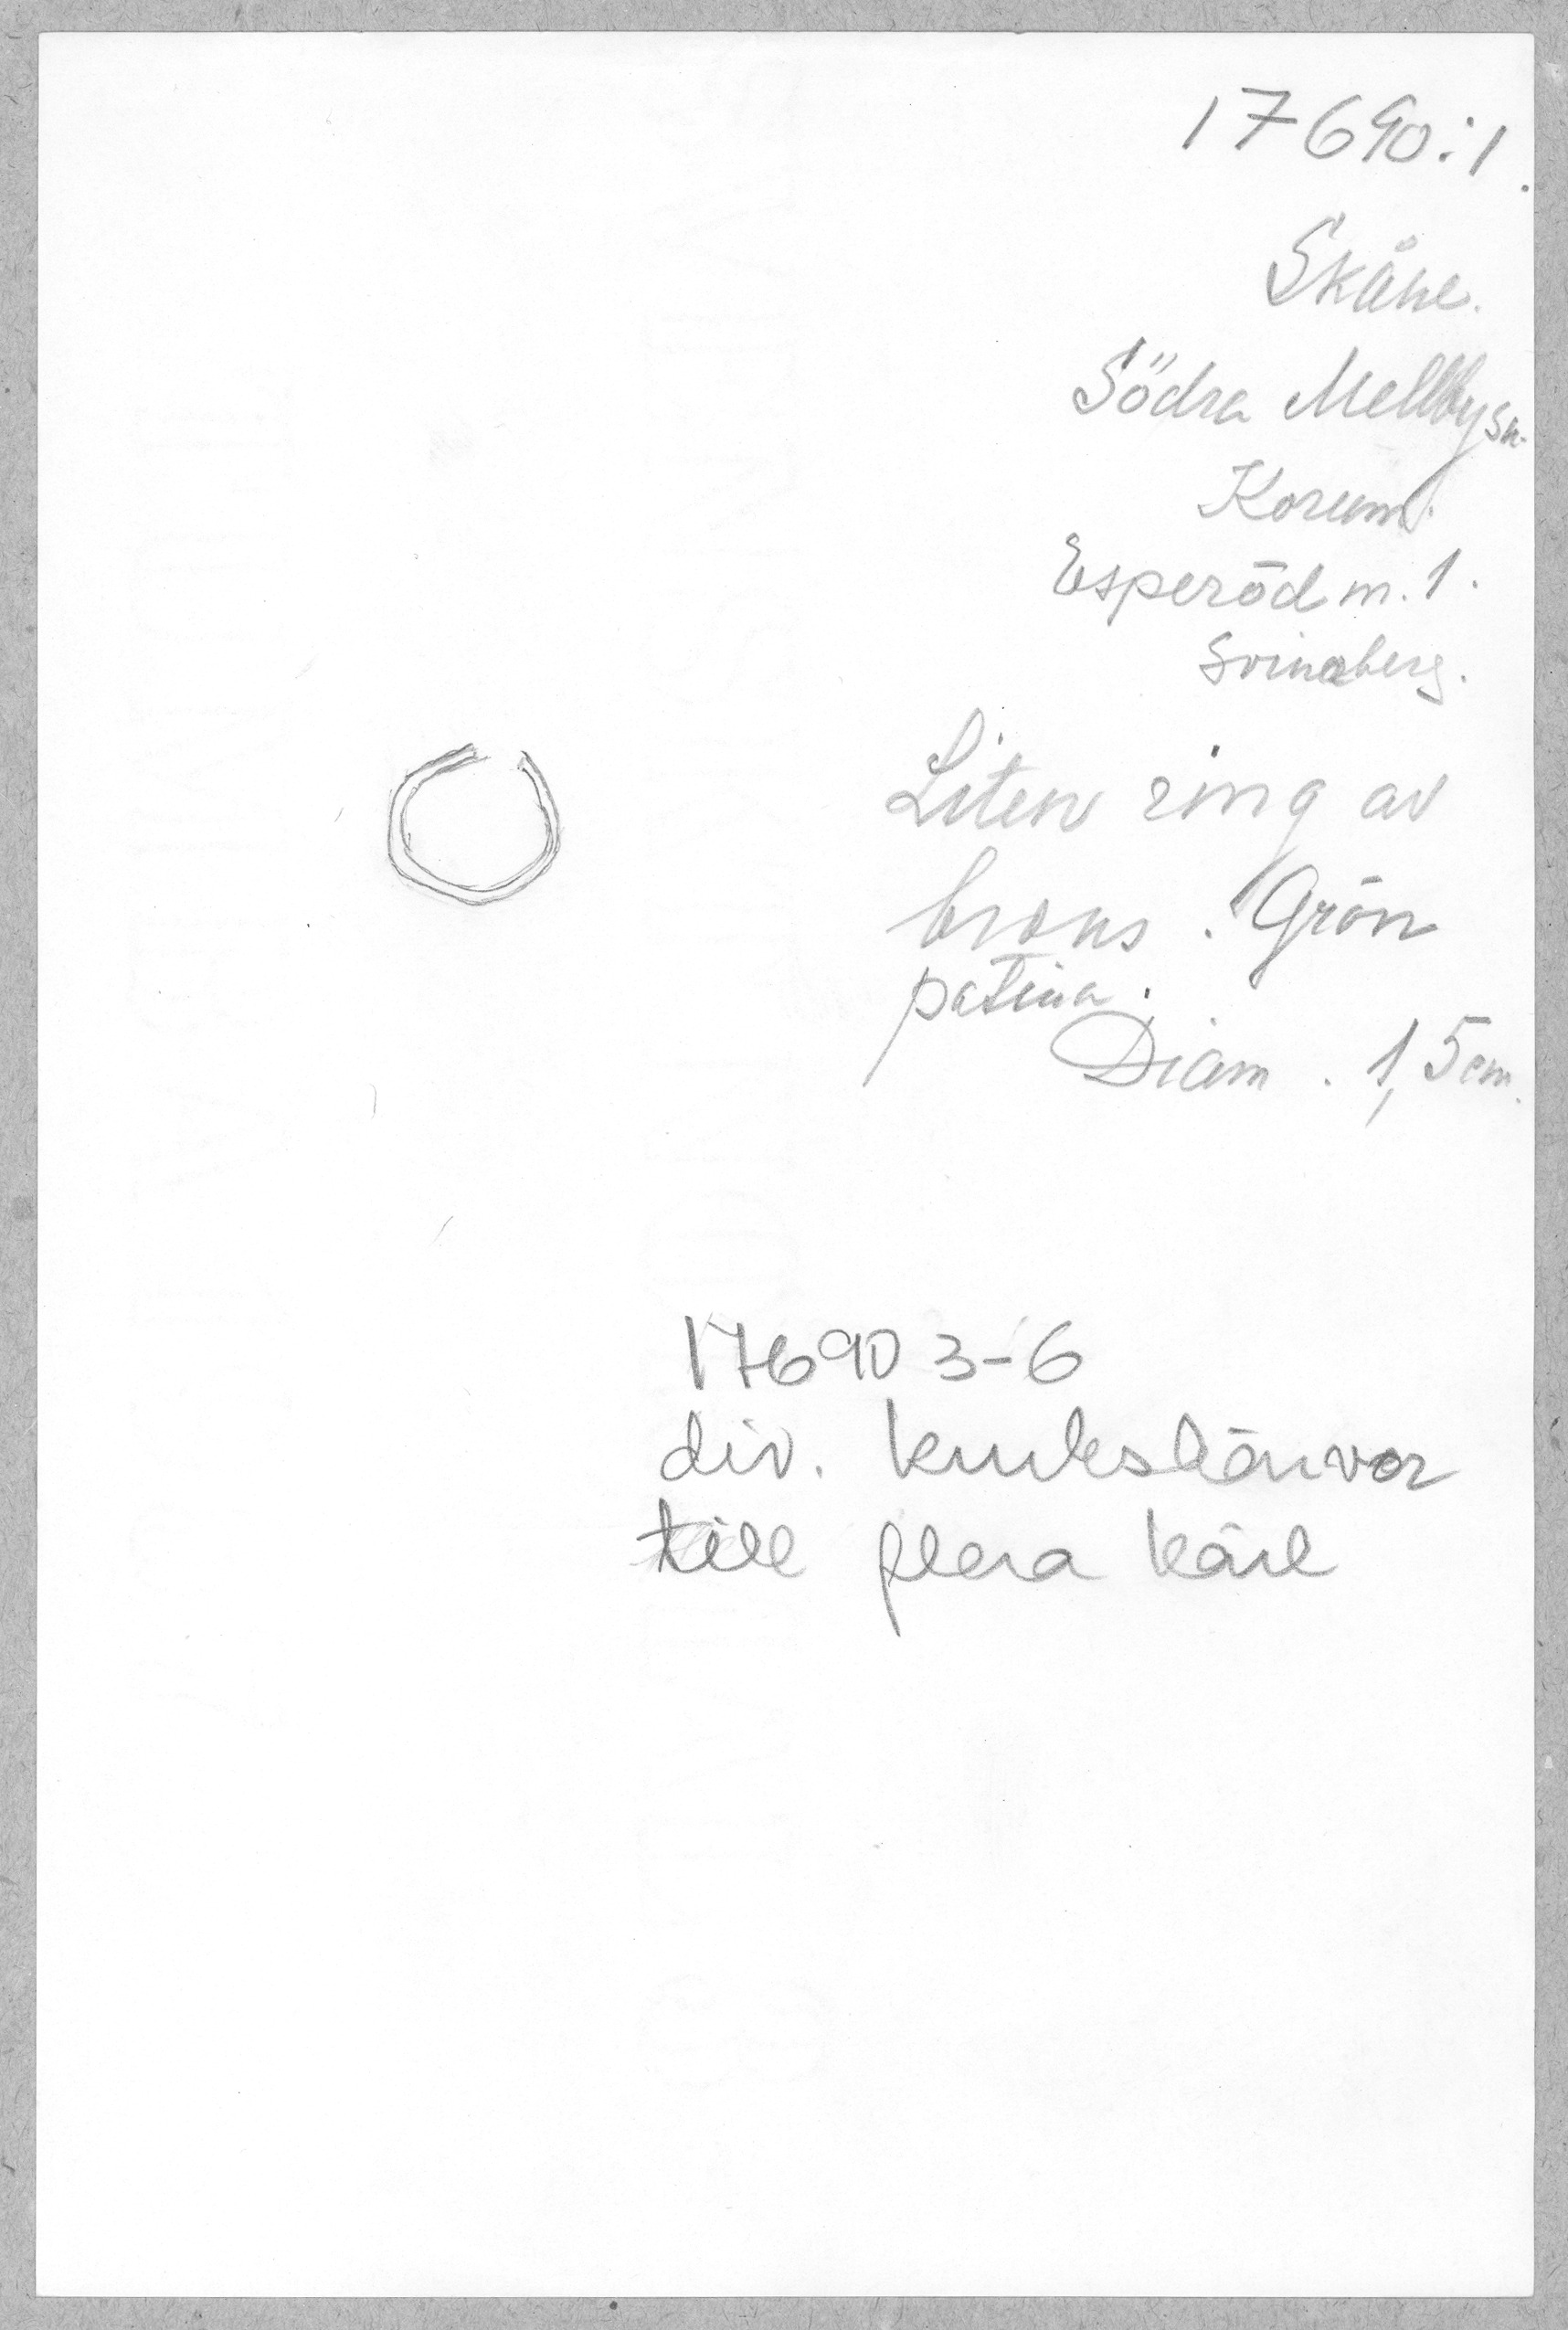 17690:1.
Skåne.
Södra Mellby sn.
Korum.
Esperöd m. 1.
Svinaberg.
Liten ring av
brons. Grön
patina.
Diam. 1,5 cm.
17690 3-6
div. krukskärvor
till flera kärl